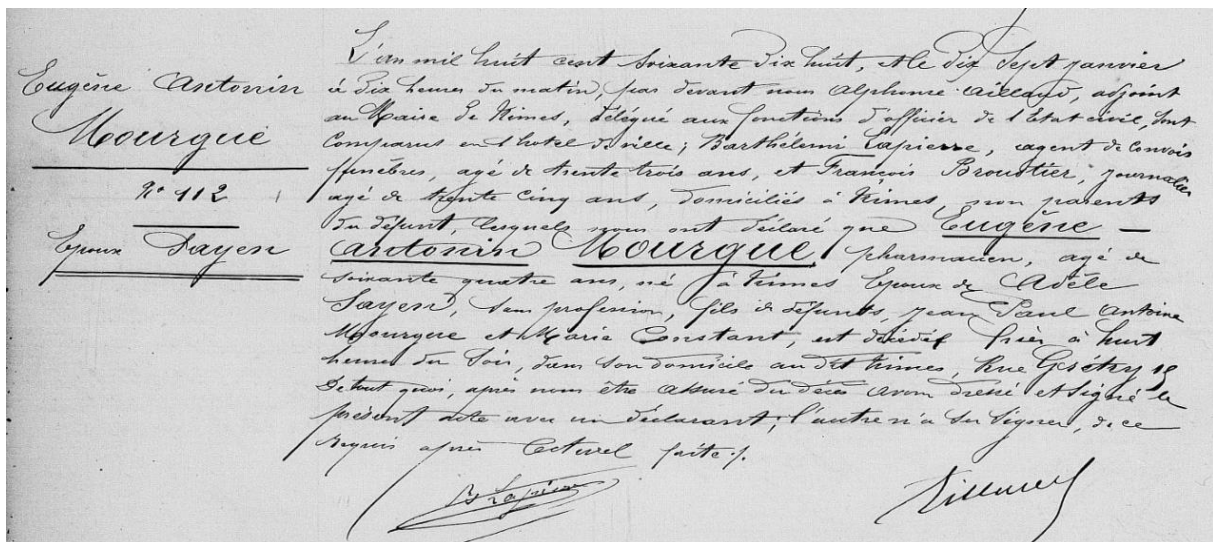 Eugène Antonin
Mourgue
N° 112
Epoux Sayen
L'an mil huit cent soixante dix huit, et le dix sept janvier
à dix heures du matin, par devant nous Alphonse Aillaud, adjoint
au Maire de Nimes, délégué aux fonctions d'officier de l'Etat civil, sont
comparus en l'hotel de ville; Barthélemi Lapierre, agent de convois
funèbres, agé de trente trois ans, et François Broustier, journalier
agé de trente cinq ans, domiciliés à Nimes, non parents
du défunt, lesquels nous ont déclaré que Eugène –
Antonin Mourgue, pharmacien, agé de
soixante quatre ans, né à Nimes Epoux de Adèle
Sayen, sans profession, fils de défunts, Jean Paul Antoine
Mourgue et Marie Constant, est décédé hier à huit
heures du soir, dans son domicile au dit Nimes, Rue Grétry 19
De tout quoi, après nous être assuré du décès avons dressé et signé le
présent acte avec un déclarant; l'autre n'a su signer, de ce
requis après lecture faite.
B Lapierre